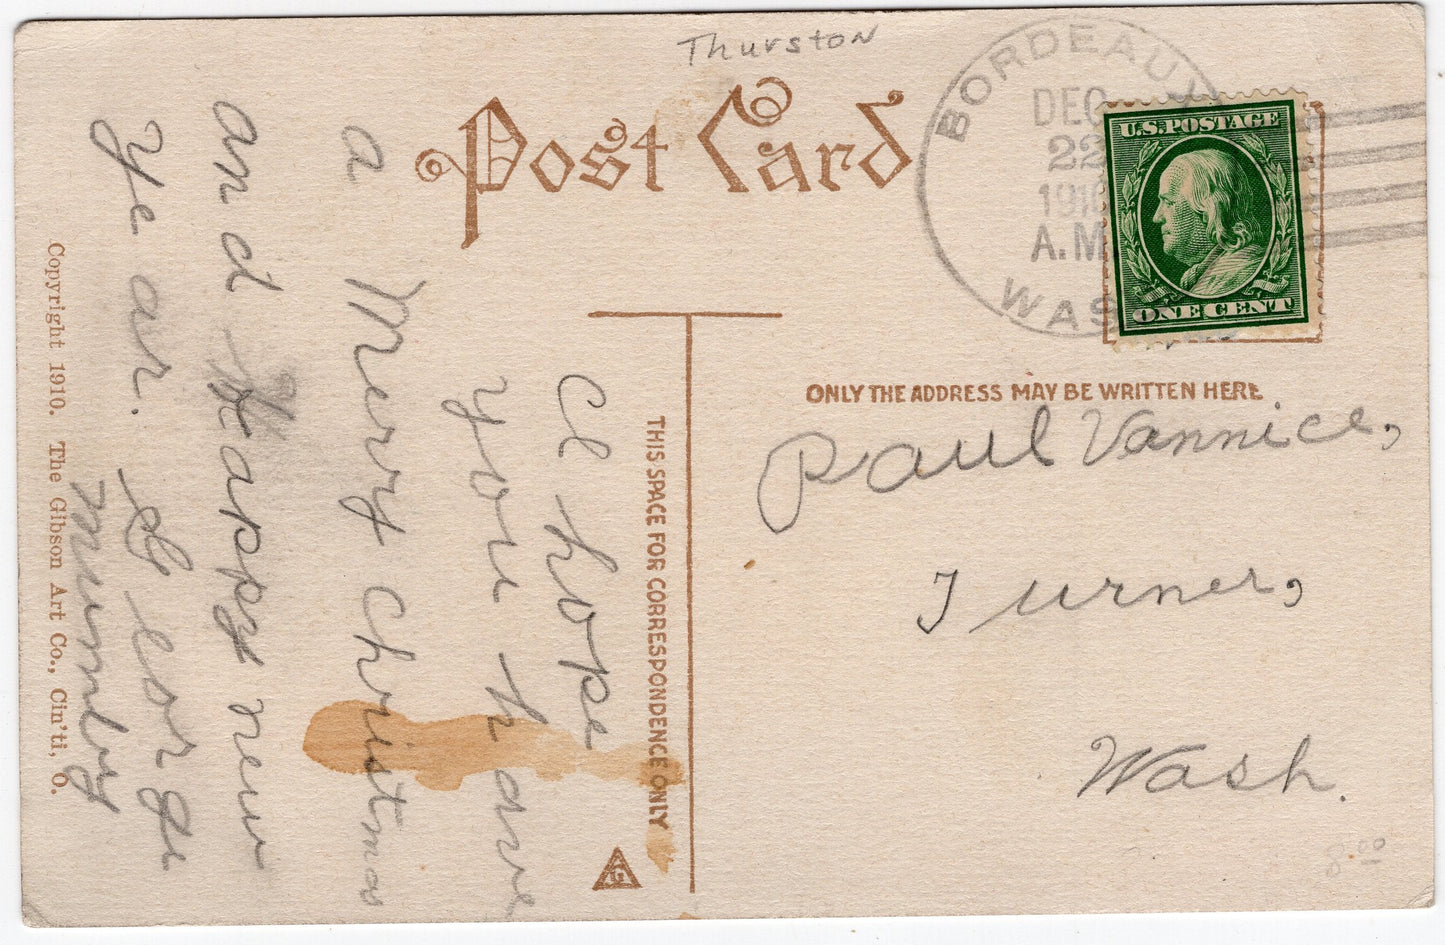 Thurston
Post Card
BORDEAUX
DEC
22
1910
A.M.
WAS
U.S.POSTAGE
ONE CENT
ONLY THE ADDRESS MAY BE WRITTEN HERE
Paul Vannice,
Turner,
Wash.
8.00
THIS SPACE FOR CORRESPONDENCE ONLY
I hope
you have
a
Merry christmas
and Happy new
Ye ar. George
Mumby
Copyright 1910. The Gibson Art Co., Cin'ti, O.
G